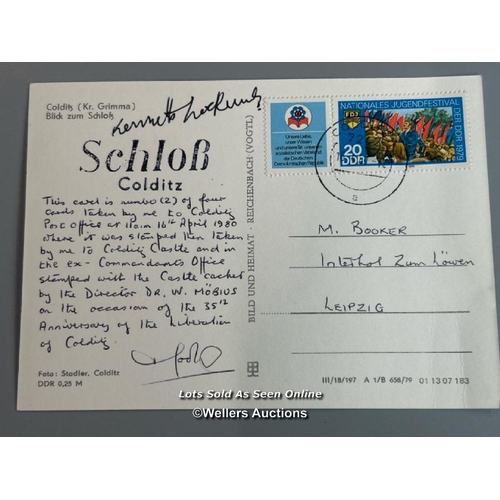 Colditz (Kr. Grimma)
Blick zum Schloß
Kenneth Lockwood
Schloß
Colditz
This card is number (2) of four
cards taken by me to Colditz
Post Office at 11am 16th April 1980
where it was stamped then taken
by me to Colditz Castle and in
the ex-Commandants Office
stamped with the Castle cachet
by the Director DR. W. MÖBIUS
on the occasion of the 35th
Anniversary of the Liberation
of Colditz.
Foto: Stadler, Colditz
DDR 0,25 M
BILD UND HEIMAT · REICHENBACH (VOGTL)
Unsere Liebe,
unser Wissen
und unsere Tat unserem
sozialistischen Vaterland
der Deutschen
Demokratischen Republik
NATIONALES JUGENDFESTIVAL
DER DDR 1979
FDJ
20
DDR
M. BOOKER
Interhol Zum Löwen
LEIPZIG
III/18/197 A 1/B 658/79 01 13 07 183
Lots Sold As Seen Online
©Wellers Auctions